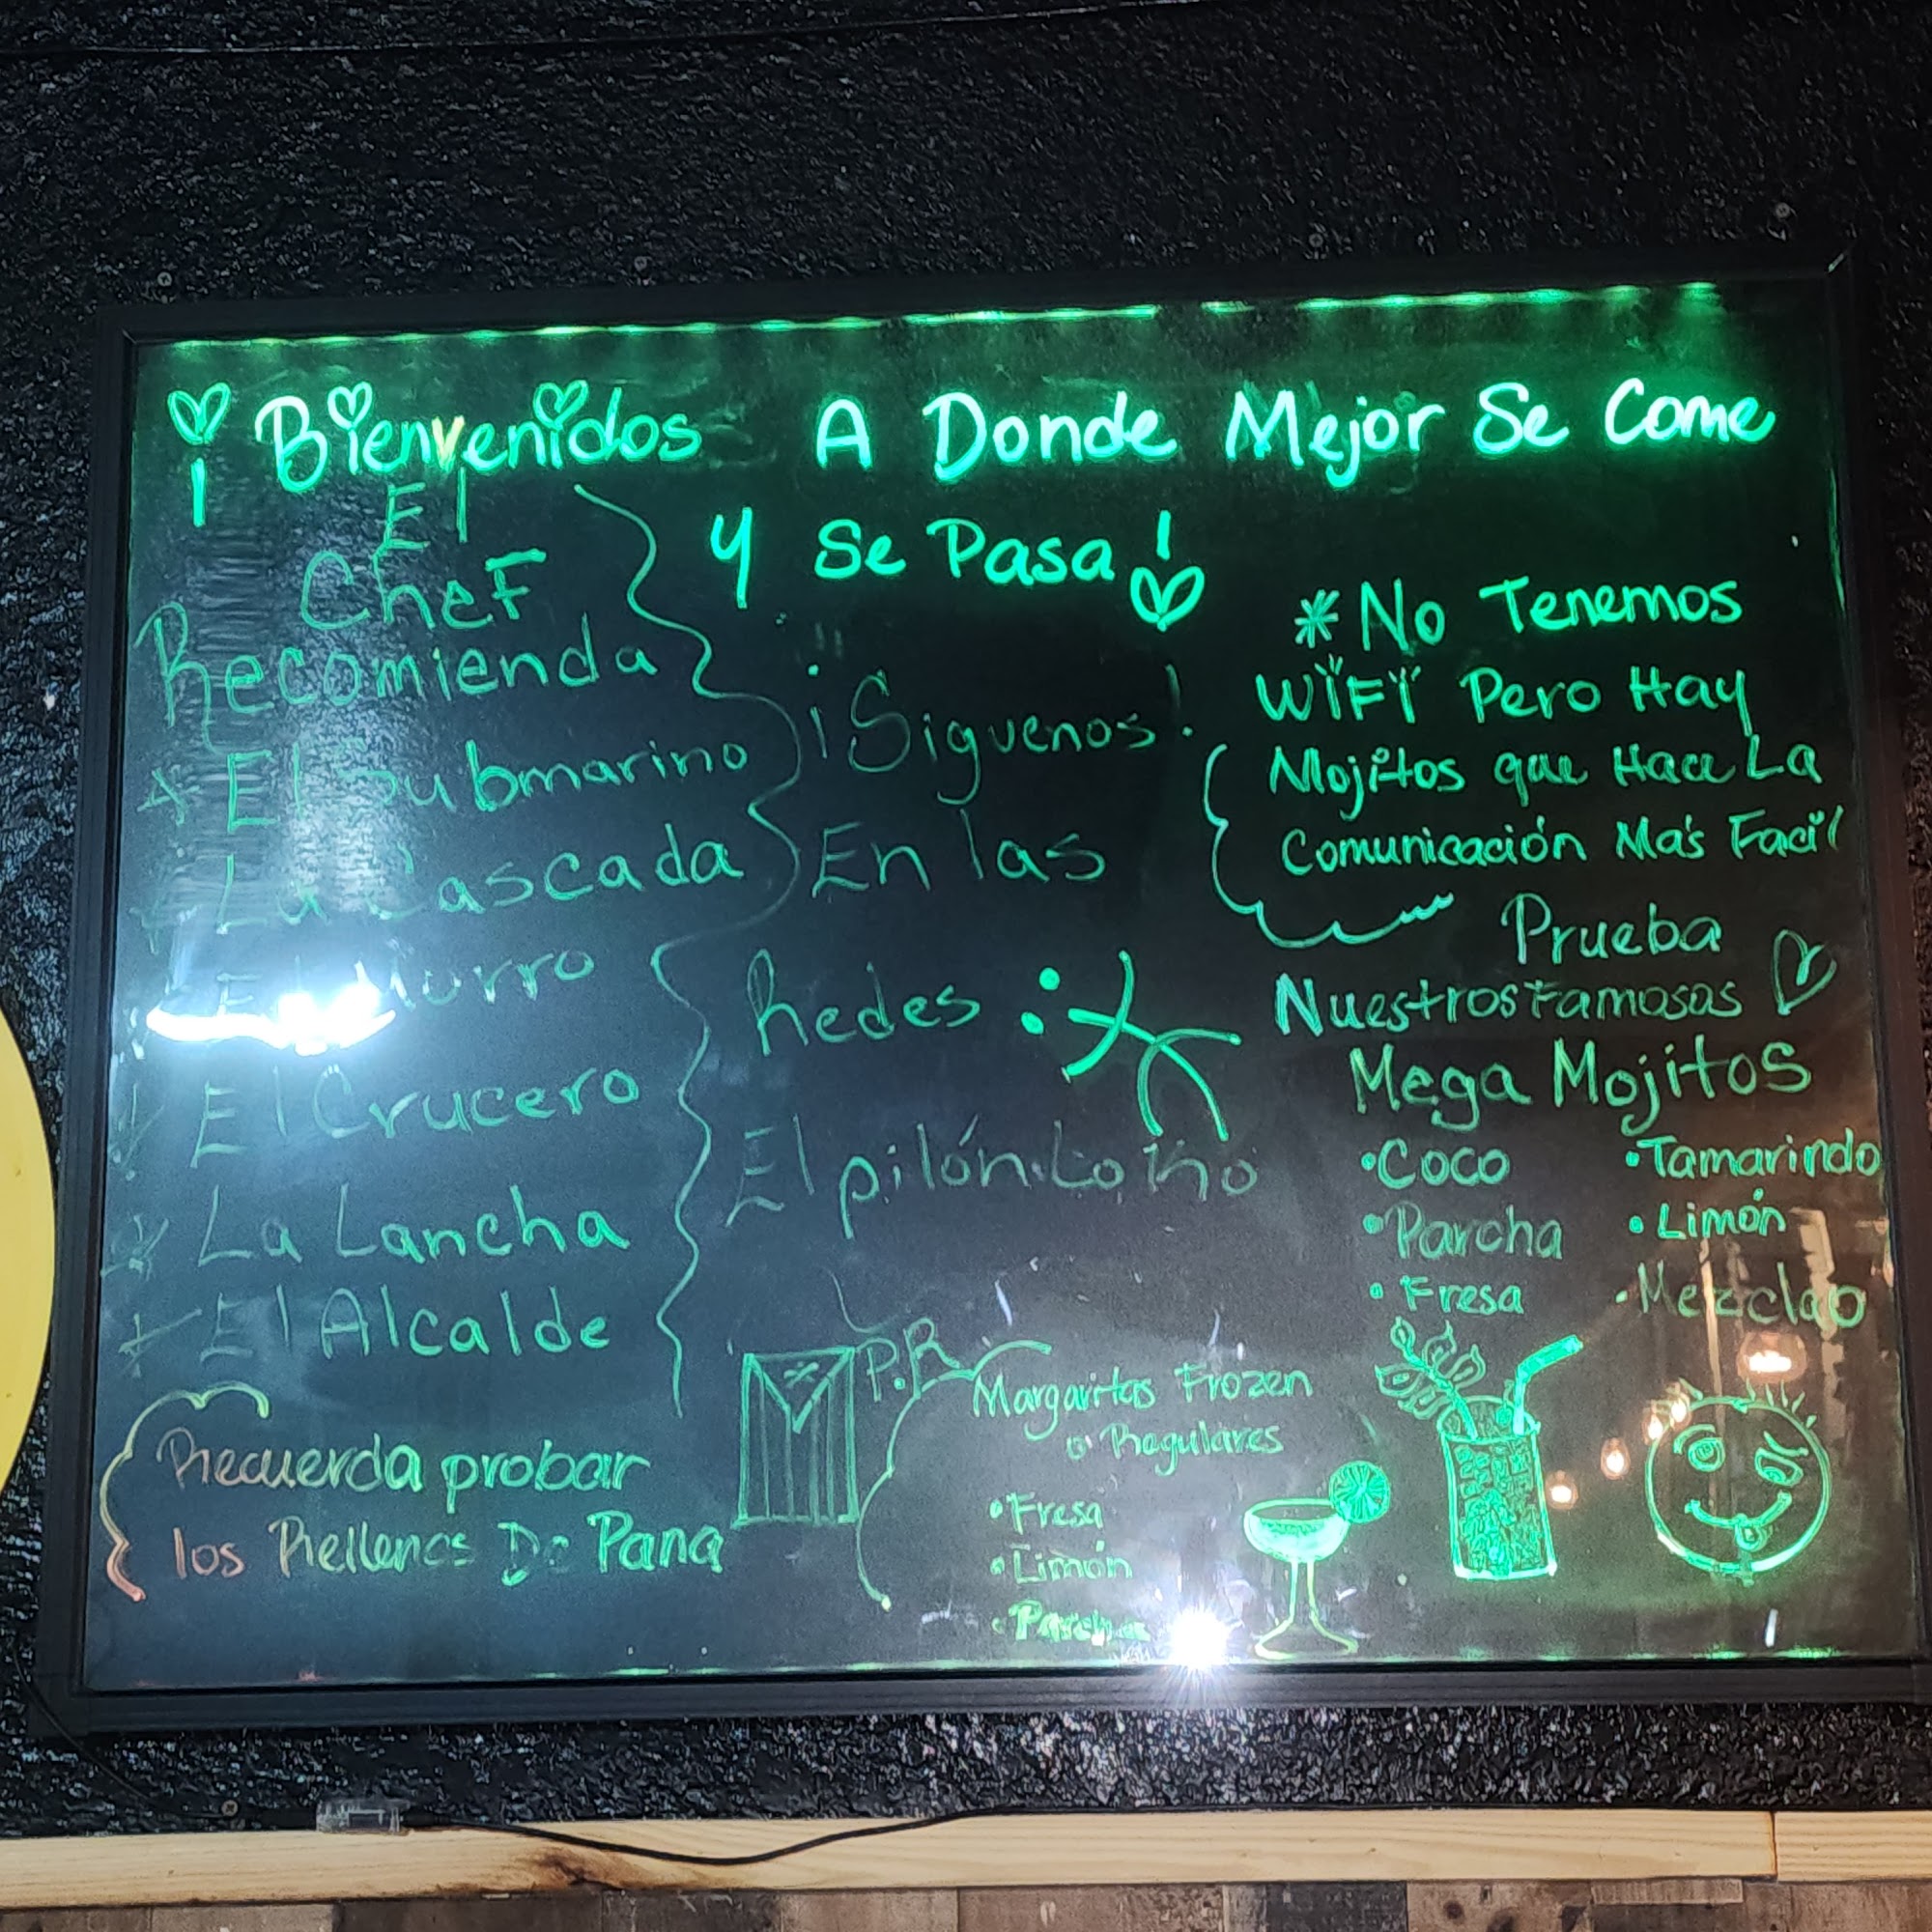 ¡Bienvenidos A Donde Mejor Se Come
Y Se Pasa!
El
Chef
Recomienda
* El Submarino
La Cascada
El
* El Crucero
* La Lancha
* El Alcalde
Recuerda probar
los Rellenos De Pana
¡Siguenos!
En las
Redes :
El pilón
P.R
Margaritas Frozen
o Regulares
• Fresa
• Limón
• Parcha
*No Tenemos
WIFI Pero Hay
Mojitos que Hace La
Comunicación Más Facil
Prueba
Nuestros Famosos
Mega Mojitos
• Coco
• Tamarindo
• Parcha
• Limón
• Fresa
• Mezclao